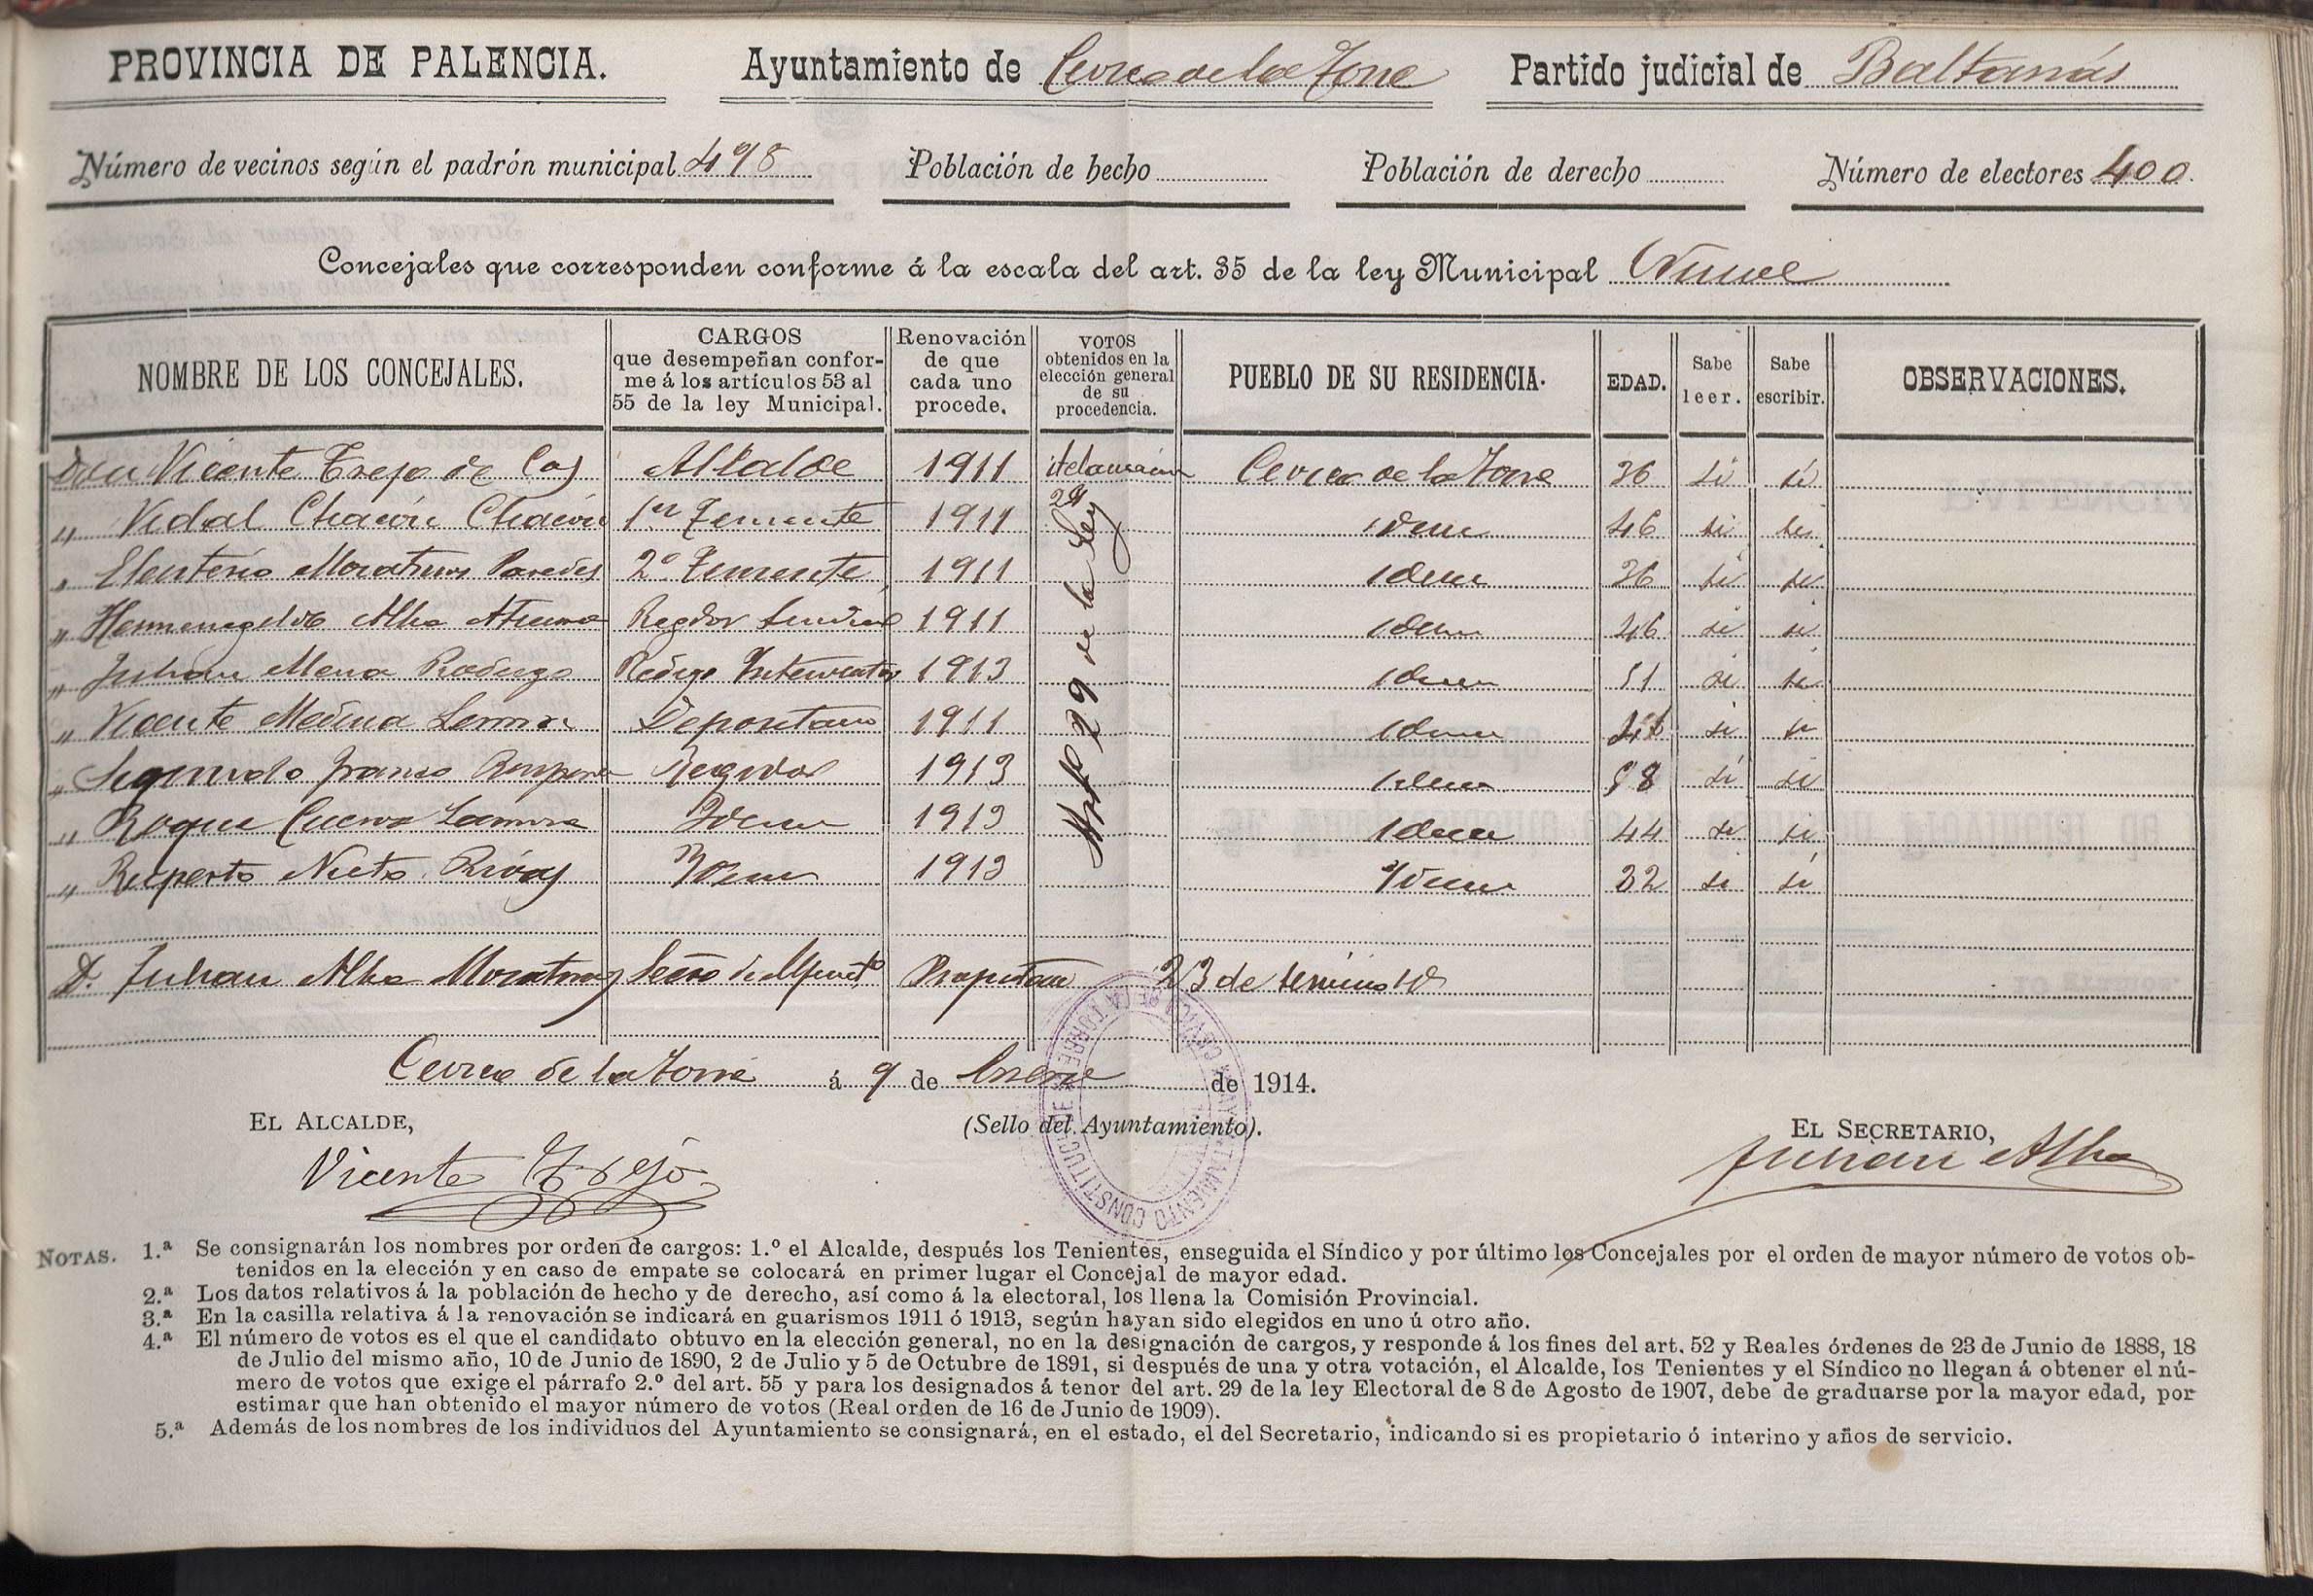 PROVINCIA DE PALENCIA. Ayuntamiento de Cevico de la Torre Partido judicial de Baltanás
Número de vecinos según el padrón municipal 498 Población de hecho Población de derecho Número de electores 400
Concejales que corresponden conforme á la escala del art. 35 de la ley Municipal Nueve
NOMBRE DE LOS CONCEJALES.
CARGOS
que desempeñan confor-
me á los artículos 53 al
55 de la ley Municipal.
Renovación
de que
cada uno
procede.
VOTOS
obtenidos en la
elección general
de su
procedencia.
PUEBLO DE SU RESIDENCIA.
EDAD.
Sabe
leer.
Sabe
escribir.
OBSERVACIONES.
Don Vicente Trejo de Cos Alcalde 1911 Cevico de la Torre 36 si si
" Vidal Chacón Chacón 1er Teniente 1911 idem 46 si si
" Eleuterio Moratinos Paredes 2º Teniente 1911 idem 36 si si
" Hermenegildo Alba Regidor Sindico 1911 idem 46 si si
" Julian Mena Rodrigo Interventor 1913 idem 51 si si
" Vicente Medina Depositario 1911 idem si si
" Segundo Franco Regidor 1913 idem 58 si si
" Roque Cuervo Zamora Idem 1913 idem 44 si si
" Ruperto Nieto Rivas Idem 1913 Idem 32 si si
Arto 29 de la Ley
D. Julian Alba Moratinos Secro de Ayuntto Propietario 23 de servicio
Cevico de la Torre á 9 de Enero de 1914.
EL ALCALDE,
(Sello del Ayuntamiento).
EL SECRETARIO,
Vicente Trejo
Julian Alba
AYUNTAMIENTO CONSTITUCIONAL DE CEVICO DE LA TORRE
NOTAS. 1.ª Se consignarán los nombres por orden de cargos: 1.º el Alcalde, después los Tenientes, enseguida el Síndico y por último los Concejales por el orden de mayor número de votos ob-
tenidos en la elección y en caso de empate se colocará en primer lugar el Concejal de mayor edad.
2.ª Los datos relativos á la población de hecho y de derecho, así como á la electoral, los llena la Comisión Provincial.
3.ª En la casilla relativa á la renovación se indicará en guarismos 1911 ó 1913, según hayan sido elegidos en uno ú otro año.
4.ª El número de votos es el que el candidato obtuvo en la elección general, no en la designación de cargos, y responde á los fines del art. 52 y Reales órdenes de 23 de Junio de 1888, 18
de Julio del mismo año, 10 de Junio de 1890, 2 de Julio y 5 de Octubre de 1891, si después de una y otra votación, el Alcalde, los Tenientes y el Síndico no llegan á obtener el nú-
mero de votos que exige el párrafo 2.º del art. 55 y para los designados á tenor del art. 29 de la ley Electoral de 8 de Agosto de 1907, debe de graduarse por la mayor edad, por
estimar que han obtenido el mayor número de votos (Real orden de 16 de Junio de 1909).
5.ª Además de los nombres de los individuos del Ayuntamiento se consignará, en el estado, el del Secretario, indicando si es propietario ó interino y años de servicio.